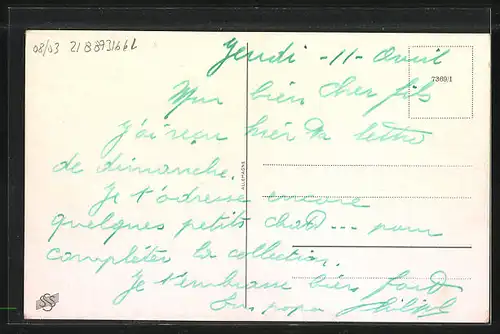 08/03 218893166L
Jeudi - 11 - Avril
7369/1
Mon bien cher fils
J'ai reçu hier ta lettre
de dimanche.
ALLEMAGNE
Je t'adresse encore
quelques petits chats... pour
compléter la collection.
Je t'embrasse bien fort
Ton papa